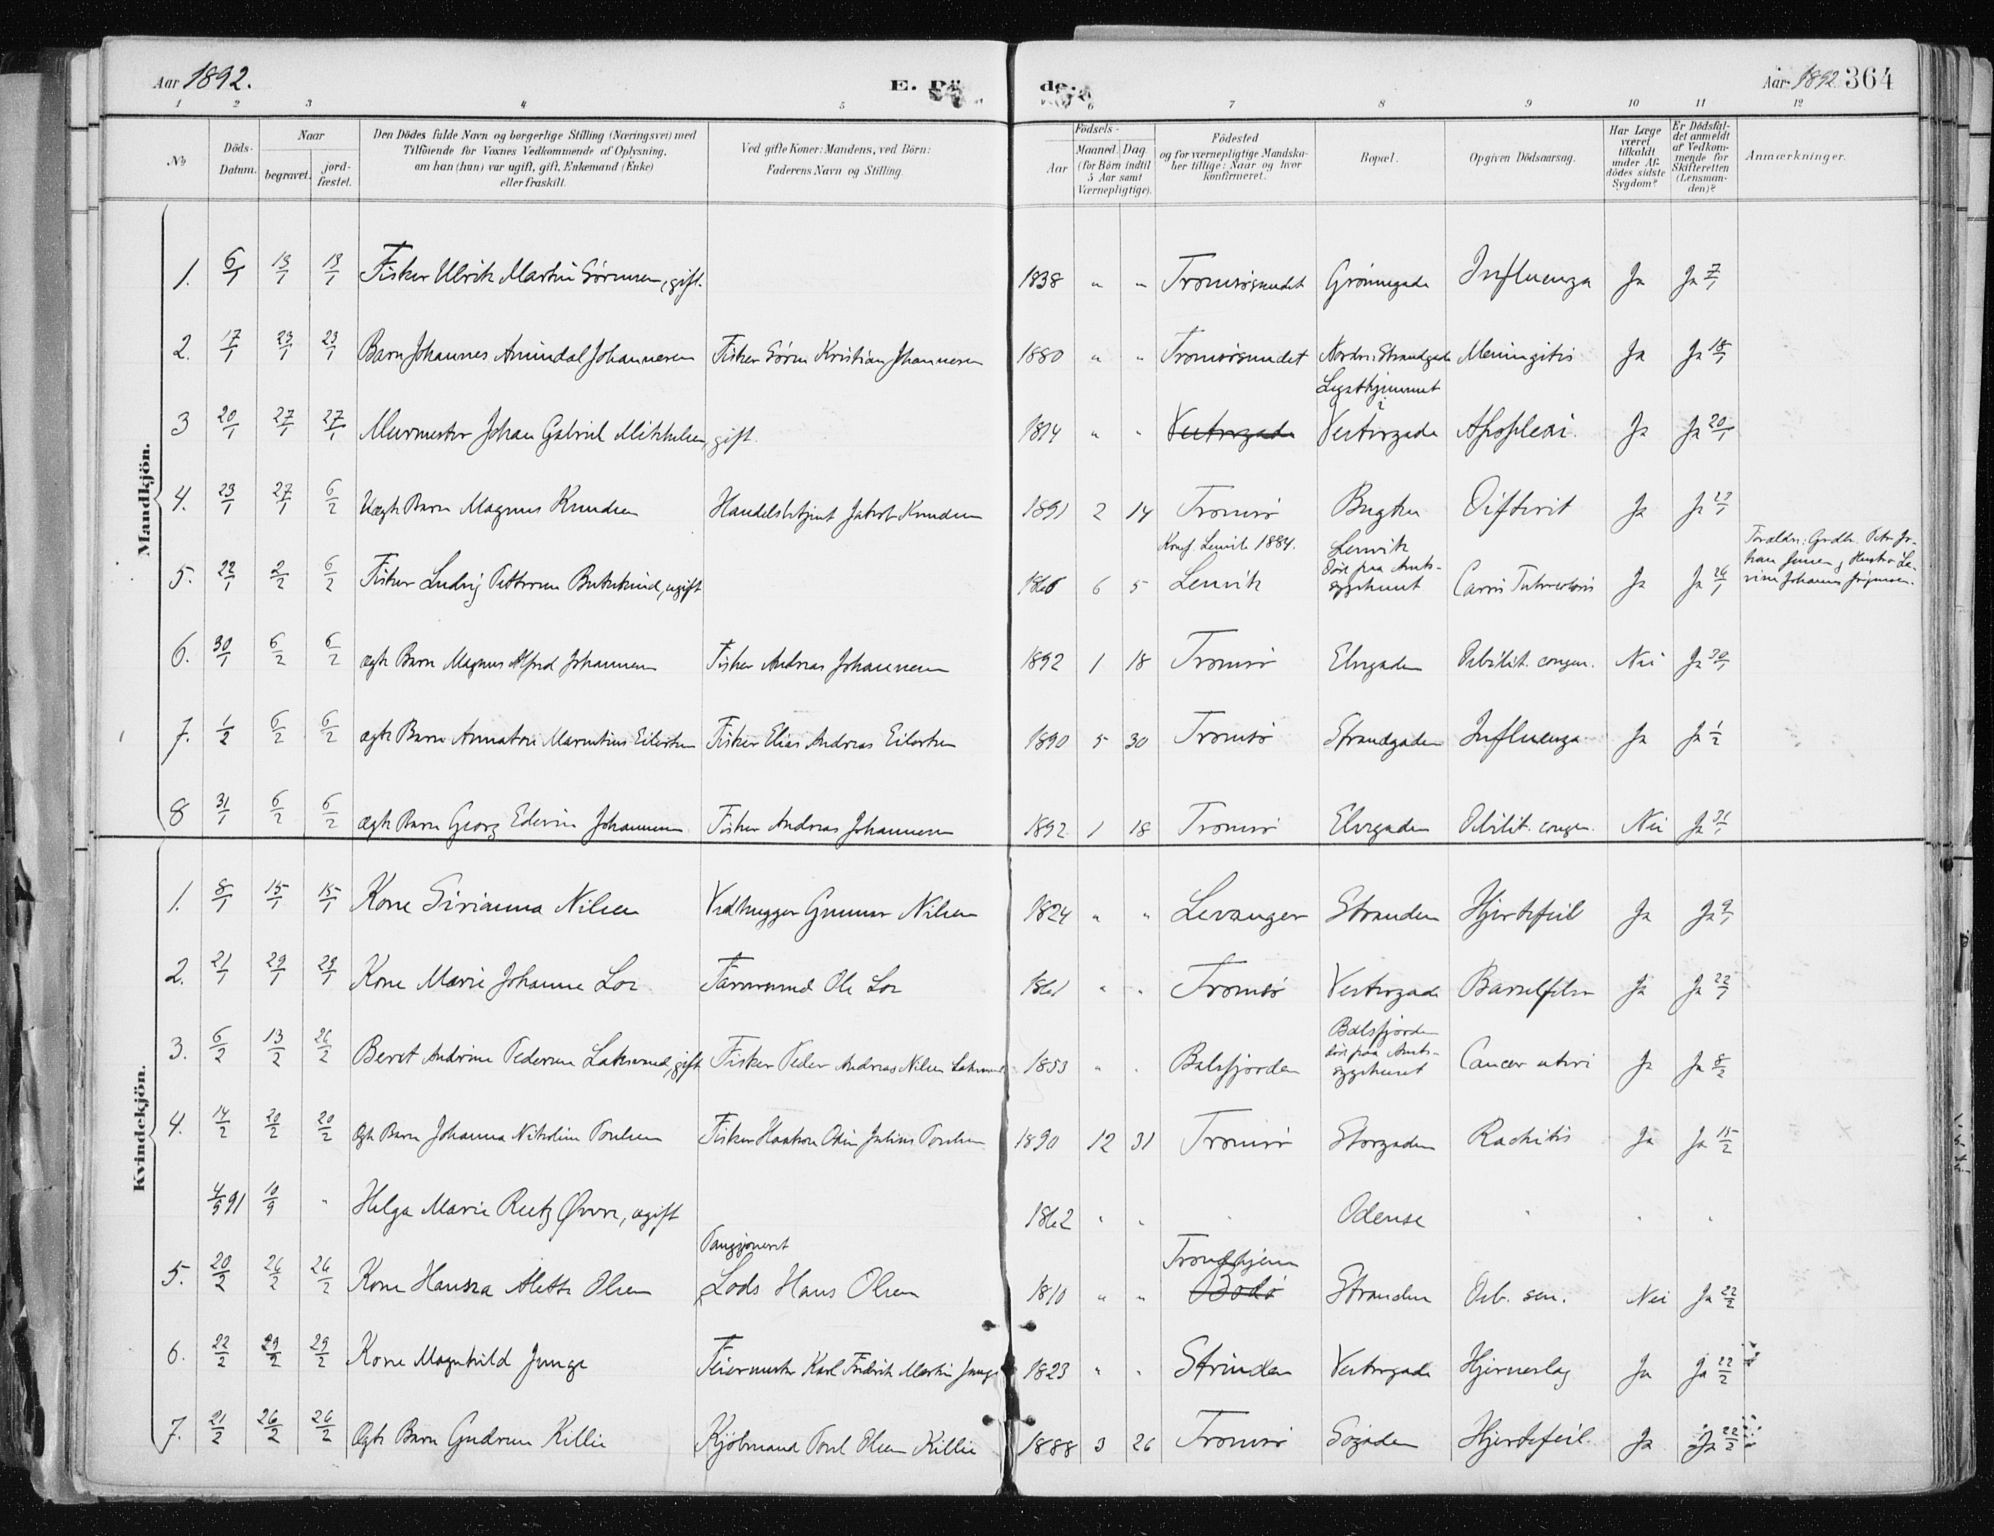 Aar 1892.
E. Dö
de.
Aar 1892 364
1 2 3 4 5 6 7 8 9 10 11 12
No
Döds-
Datum.
Naar
begravet.
jord-
fæstet.
Den Dödes fulde Navn og borgerlige Stilling (Næringsvei) med
Tilföiende for Voxnes Vedkommende af Oplysning,
om han (hun) var ugift, gift, Enkemand (Enke)
eller fraskilt.
Ved gifte Koner: Mandens, ved Börn:
Faderens Navn og Stilling.
Födsels-
Aar
Maaned. Dag.
(for Börn indtil
5 Aar samt
Værnepligtige).
Födested
og for værnepligtige Mandska-
ber tillige: Naar og hvor
konfirmeret.
Bopæl.
Opgiven Dödsaarsag.
Har Læge
været
tilkaldt
under Af-
dödes sidste
Sygdom?
Er Dödsfal-
det anmeldt
af Vedkom-
mende for
Skifteretten
(Lensman-
den)?
Anmærkninger.
Mandkjön.
1. 6/1 13/1 13/1 Fisker Ulrik Martin Sörensen, gift. 1838 " " Tromsösundet Grönnegade Influenza Ja Ja 7/1
2. 17/1 23/1 23/1 Barn Johannes Amindal Johannesen Fisker Sören Kristian Johannesen 1880 " " Tromsösundet Nordre Strandgade Meningitis Ja Ja 18/1
3 20/1 27/1 27/1 Murmester Johan Gabriel Mikkelsen, gift. 1814 " " Vestregade Vestregade Apoplexi. Ja Ja 20/1
4. 23/1 27/1 6/2 Uægte Barn Magnus Knudsen Handelsbetjent Jakob Knudsen 1891 2 14 Tromsö Bugten Difterit Ja Ja
Konf. Lenvik 1884. Lenvik
5. 22/1 2/2 6/2 Fisker Ludvig Pettersen, ugift 1866 6 5 Lenvik död paa Amts-
sygehuset Caries Ja Ja 26/1
6. 30/1 6/2 6/2 ægte Barn Magnus Alfred Johannesen Fisker Andreas Johannesen 1892 1 18 Tromsö Elvegaden Debilit. congen. Nei Ja 30/1
7. 1/2 6/2 6/2 ægte Barn Eilertsen Fisker Elias Andreas Eilertsen 1890 5 30 Tromsö Strandgaden Influenza Ja Ja 1/2
8 31/1 6/2 6/2 ægte Barn Georg Edvin Johannesen Fisker Andreas Johannesen 1892 1 18 Tromsö Elvegaden Debilit. congen. Nei Ja 31/1
Kvindekjön.
1. 8/1 15/1 15/1 Kone Sirianna Nilsen Vedhugger Gunnar Nilsen 1824 " " Levanger Stranden Hjertefeil Ja Ja 9/1
2. 21/1 29/1 29/1 Kone Marie Johanne Lor Ole Lor 1861 " " Tromsö Vestregade Barselfeber Ja Ja 22/1
3. 6/2 13/2 26/2 Beret Andrine Pedersen Laksvand, gift Fisker Peder Andreas Nilsen Laksvand 1853 " " Balsfjorden Balsfjorden
död paa Amts-
sygehuset Cancer uteri Ja Ja 8/2
4. 14/2 20/2 20/2 Ægte Barn Johanna Nikoline Poulsen Fisker Haakon Odin Julius Poulsen 1890 12 31 Tromsö Storgaden Rachitis Ja Ja 15/2
4/9 91 10/9 " Helga Marie Reetz Övre, ugift 1862 " " " Odense " " "
Pensjoneret Trondhjem
5. 20/2 26/2 26/2 Kone Hansea Aletta Olsen Lods Hans Olsen 1810 " " Bodö Stranden Deb. sen. Nei Ja 22/2
6. 22/2 29/2 29/2 Kone Magnhild Junge Feiermester Karl Fredrik Martin Junge 1823 " " Strinden Vestregade Hjerneslag Ja Ja 22/2
7. 21/2 26/2 26/2 Ægte Barn Gudrun Killie Kjöbmand Poul Olsen Killie 1888 3 26 Tromsö Sögaden Hjertefeil. Ja Ja 22/2